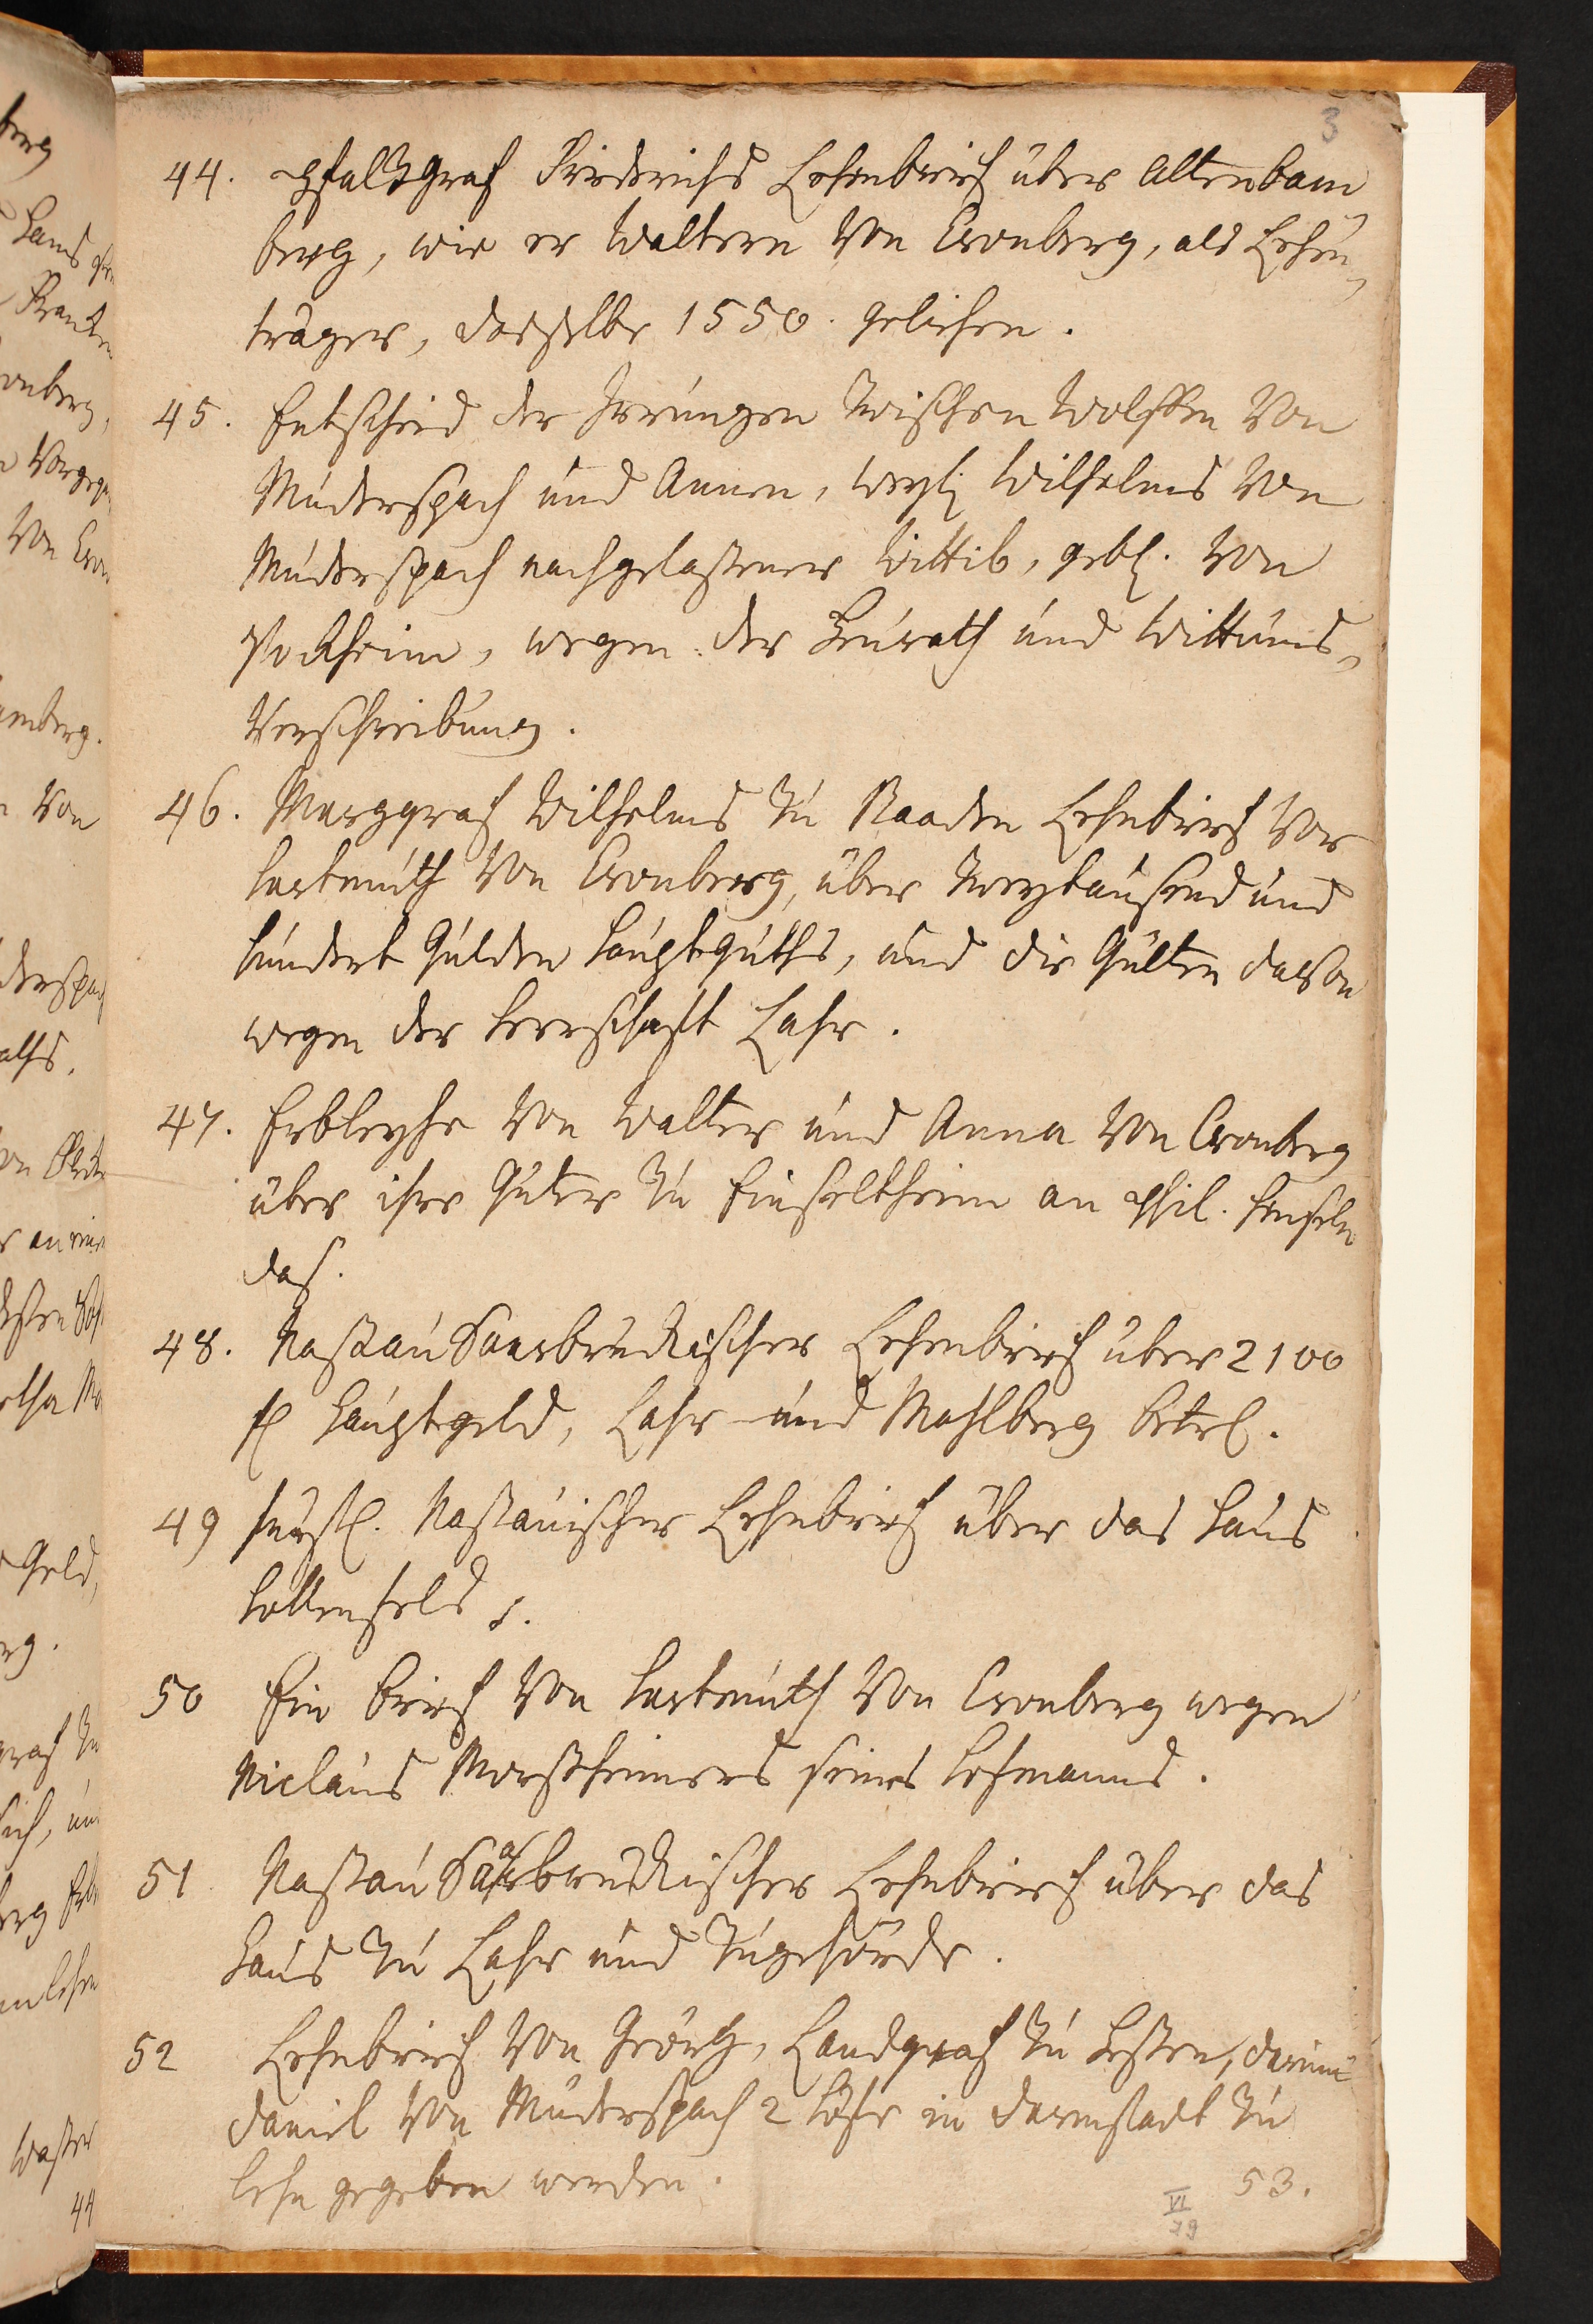 3
44. Pfaltzgraf Friderichs Lehenbrief über Altenbam
berg, wie er Waltern von Cronberg, als Lehen-
träger, dasselbe 1550. geliehen.
45. Entscheid der Irrungen zwischen Wolffen von
Muderspach und Annen, weyl. Wilhelms von
Muderspach nachgelassener Wittib, gebl. von
Stockheim, wegen der Heurath und Wittums-
Verschreibung.
46. Marggraf Wilhelms zu Baaden Lehnbrief vor
Hartmuth von Cronberg, über zweytausend und
hundert Gulden Hauptguths, und die Gülten davon
wegen der Herrschafft Lahr.
47. Erbleyhe von Walter und Anna von Cronberg
über ihre Güter zu Einseltheim an Phil. Henseln
das.
48. Nassau Saarbrückischer Lehenbrief über 2100
fl Hauptgeld, Lahr und Mahlberg betrl.
49 fürstl. Nassauischer Lehnbrief über das Haus
Hollenfels.
50 Ein Brief von Hartmuth von Cronberg wegen
Niclaus Morssheimers seines Lehmanns.
51 Nassau Saarbrückischer Lehnbrief über das
Haus zu Lahr und Zugehörde.
52 Lehnbrief von Geörg, Landgraf zu Hessen, darinn
Daniel von Muderspach 2 Höfe in Darmstadt zu
Lehn gegeben werden.
53.
VI
79